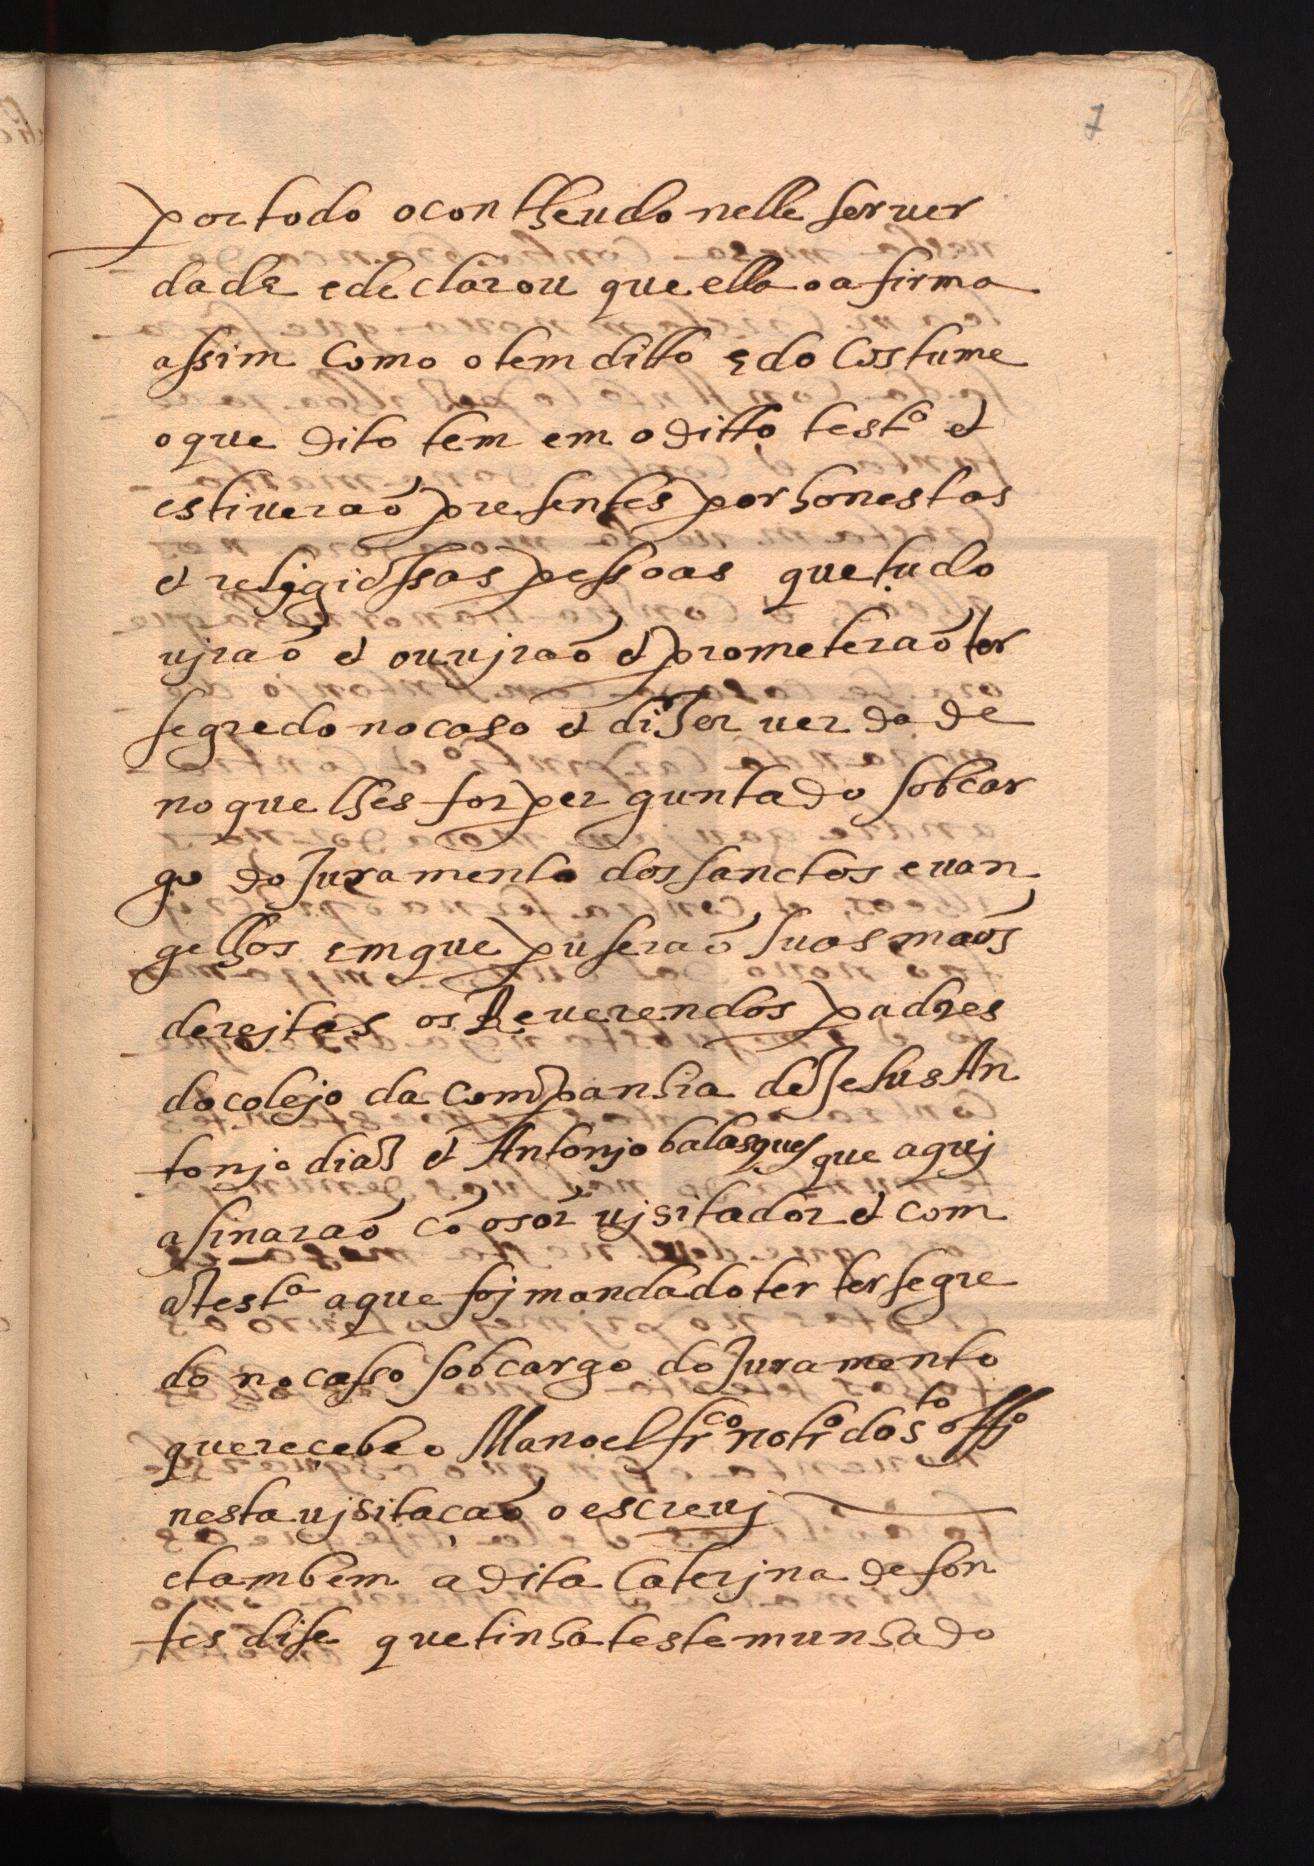 7
por todo o contheudo nelle ser ver
dade e declarou que ella o afirma
assim como o tem ditto e do costume
o que dito tem em o ditto test.o et
estiveraõ presentes por honestas
et religiossas pessoas que tudo
vjraõ et ouvjraõ et prometeraõ ter
segredo no caso et dizer verdade
no que lhes for perguntado sob car
go do Juramento dos sanctos evan
gelhos em que puseraõ suas maõs
derejtas os Reverendos padres
do colejo da companhia de Jesus An
tonjo diaz et Antonjo balasques que aquj
asinaraõ cõ o sõr vjsitador et com
a test.a a que foj mandado ter ter segre
do no casso sob cargo do Juramento
que recebeo Manoel fr.co not.ro do s.to off.o
nesta vjsitaçaõ o escrevj
e tambem a dita Caterjna de fon
tes dise que tinha testemunhado